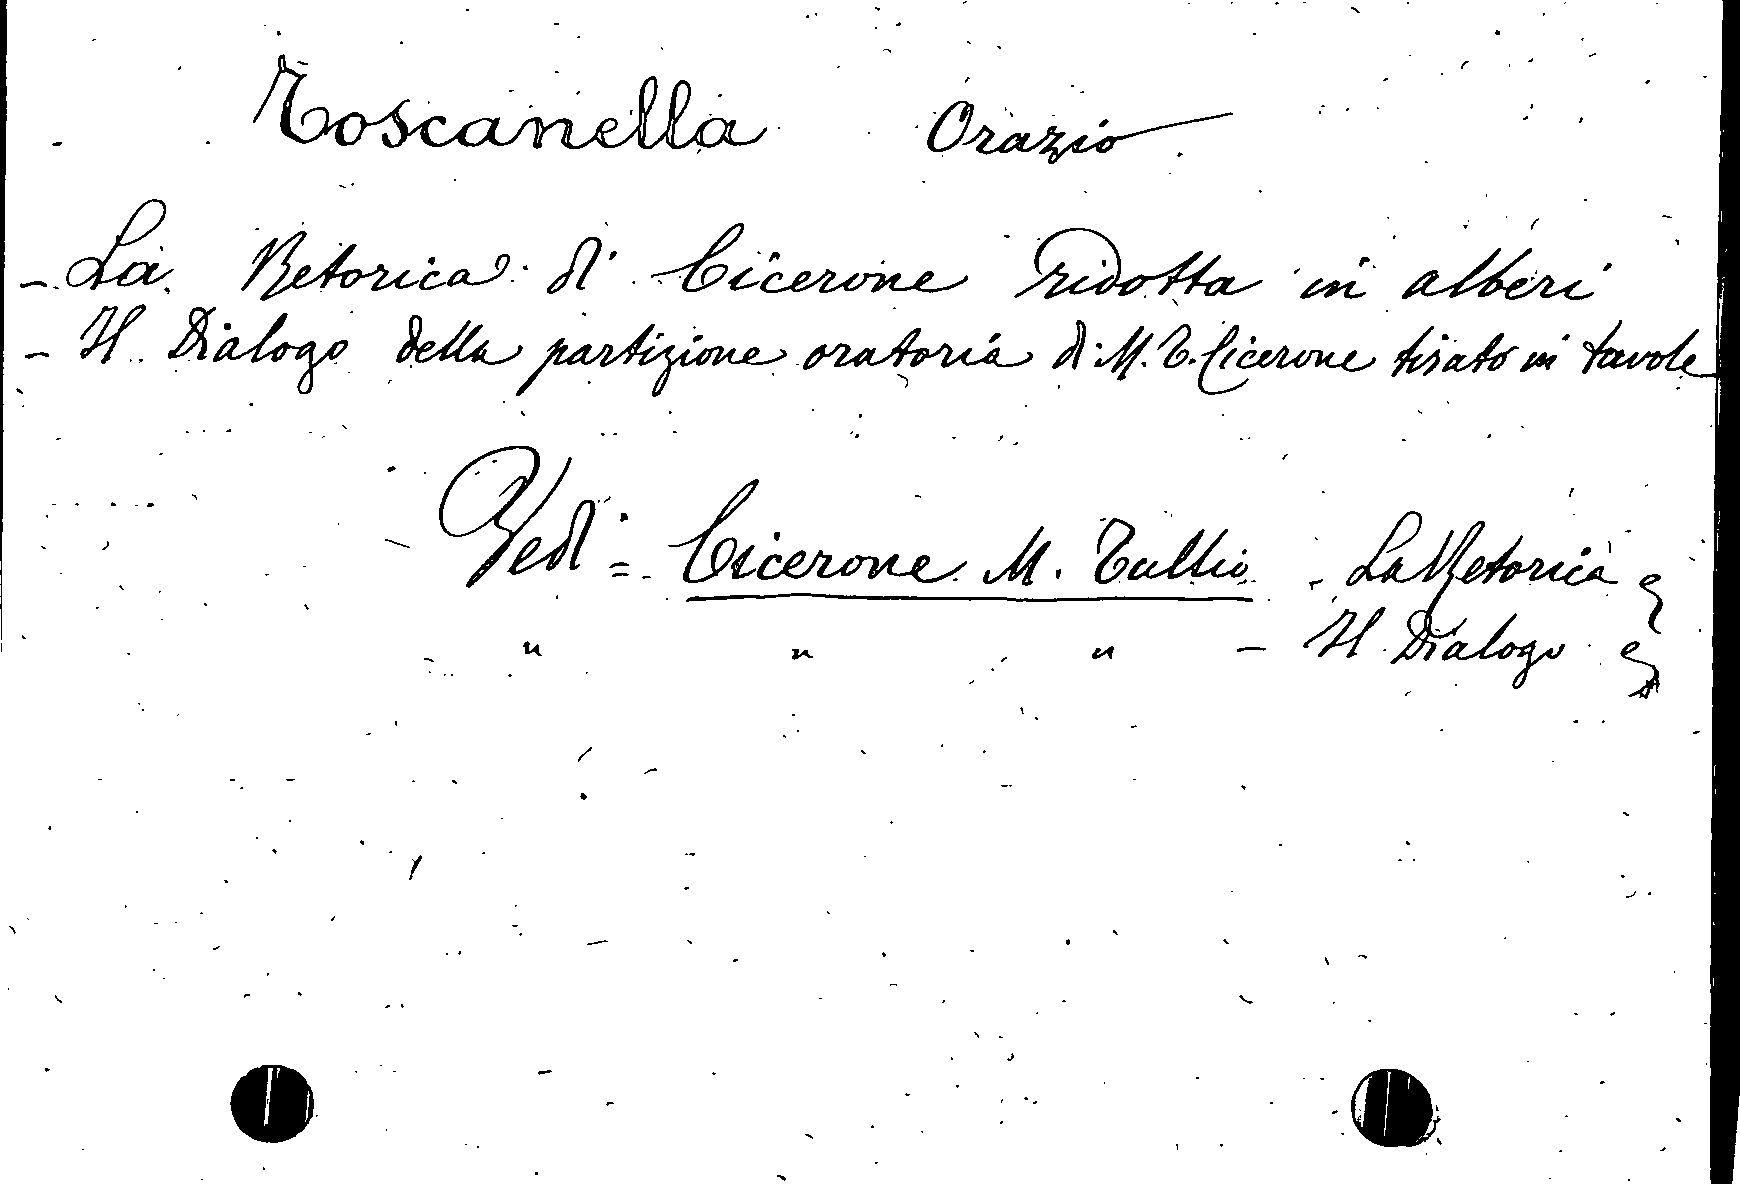 Toscanella Orazio
- La Retorica di Cicerone ridotta in alberi
- Il Dialogo della partizione oratoria di M. T. Cicerone tirato in tavole
Vedi = Cicerone M. Tullio - La Retorica
" " " - Il Dialogo